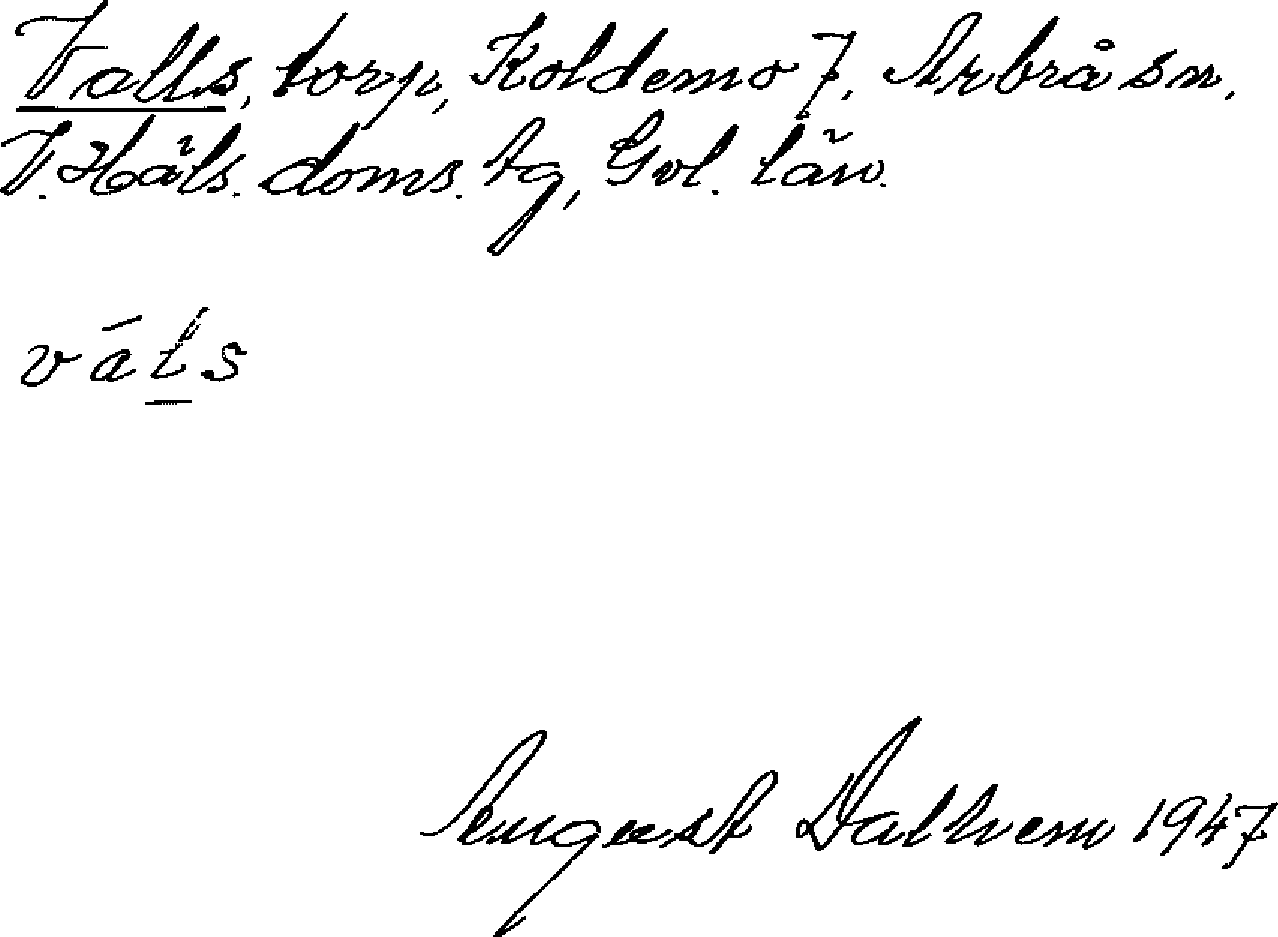 Valls, torp, Koldemo 7, Arbrå sn,
V. Häls. doms. tg, Gvl. län.
váls
August Dalhem 1947